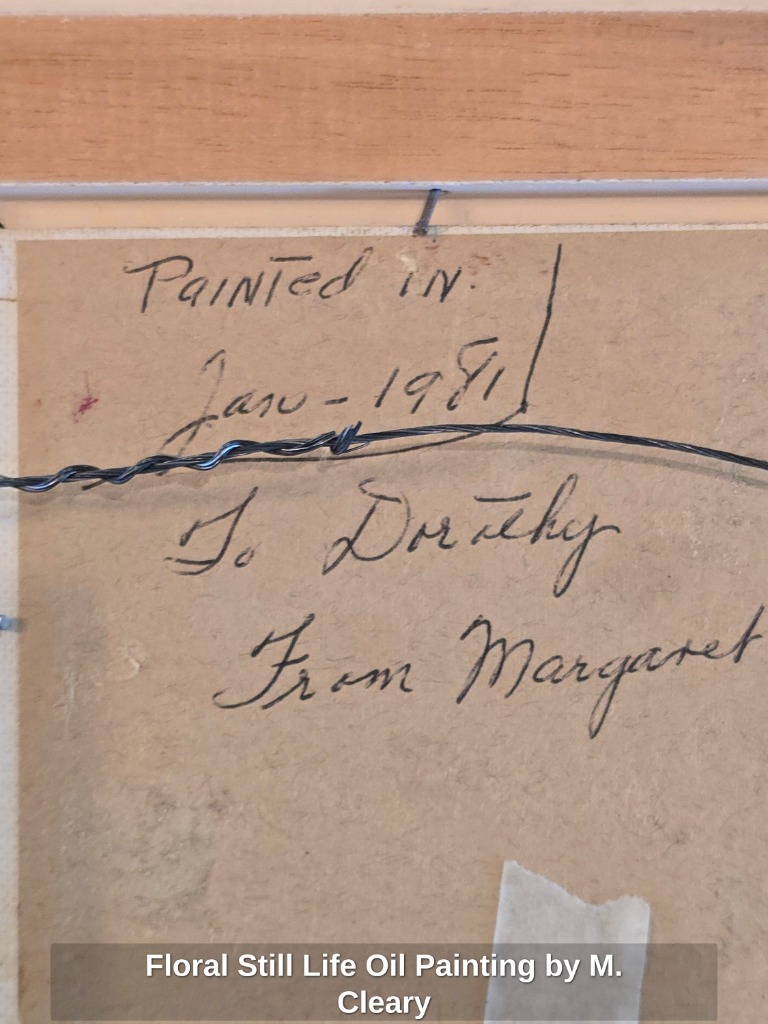 Painted in.
Jan - 1981
To Dorothy
From Margaret
Floral Still Life Oil Painting by M.
Cleary